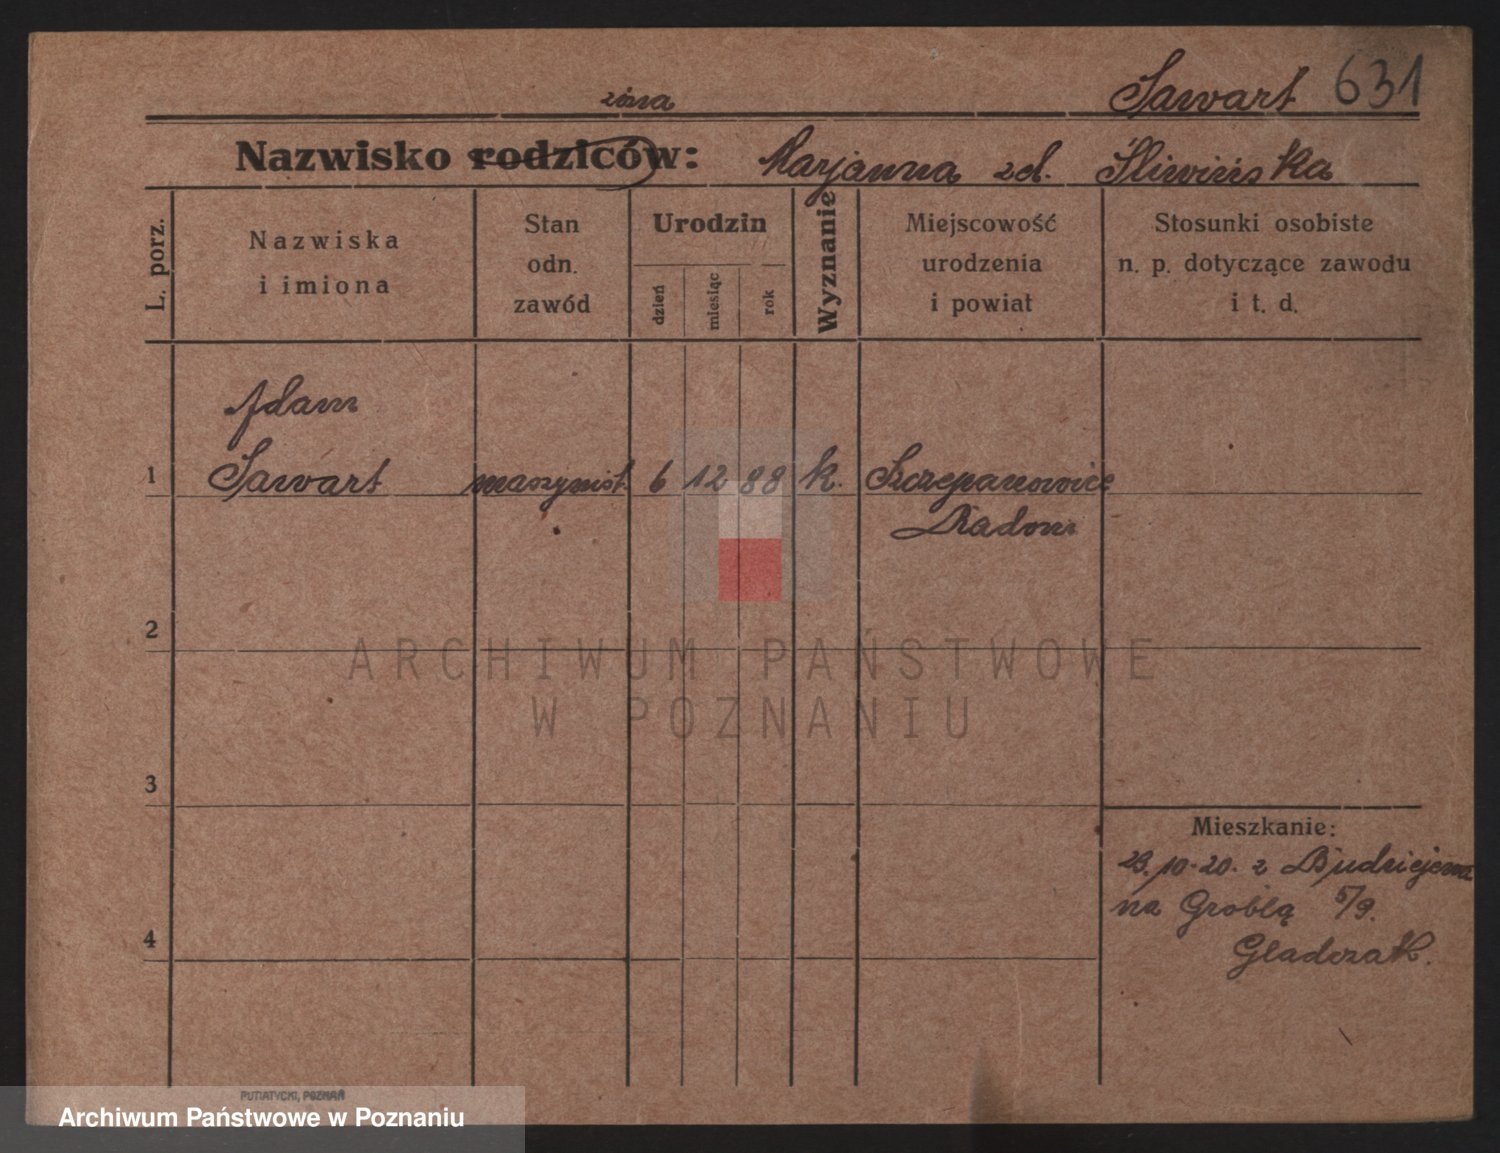 Sawart 631
żona
Nazwisko rodziców: Marjanna zd. Śliwińska
L. porz.
Nazwiska
i imiona
Stan
odn.
zawód
Urodzin
dzień
miesiąc
rok
Wyznanie
Miejscowość
urodzenia
i powiat
Stosunki osobiste
n. p. dotyczące zawodu
i t. d.
Adam
1 Sawart maszynist. 6 12 88 k. Szczepanowice
Radom
2
ARCHIWUM PAŃSTWOWE
W POZNANIU
3
Mieszkanie:
29.10.20. z Budziejewa
na Groblą 5/9.
4
Gladczak.
PUTIATYCKI, POZNAŃ
Archiwum Państwowe w Poznaniu